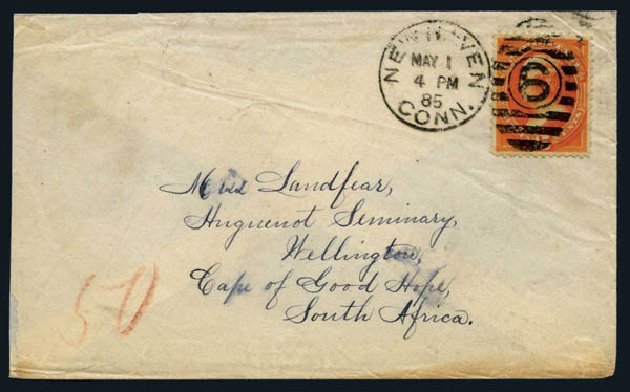 NEW HAVEN
MAY 1
4 PM
85
CONN.
6
CENTS
Miss Landfear,
Huguenot Seminary,
Wellington,
Cape of Good Hope,
South Africa.